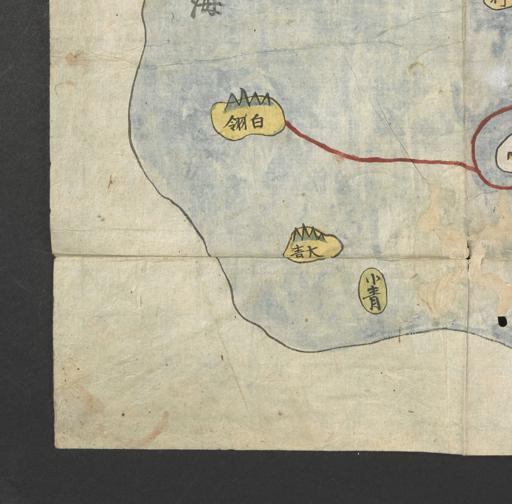 海
白翎
大青
小青